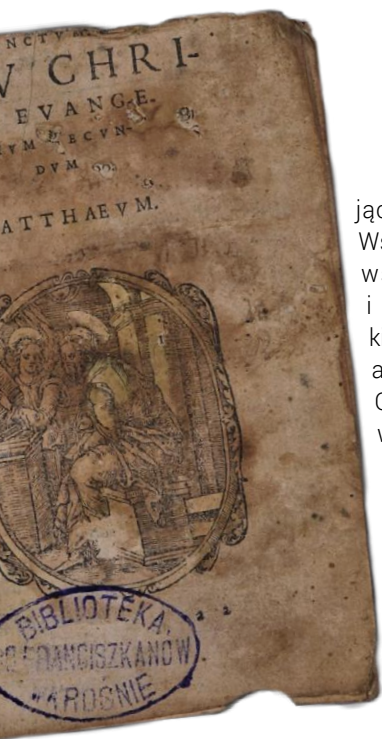 NCTVM
V CHRI-
EVANGE-
IVM SECVN-
DVM
ATTHAEVM.
BIBLIOTEKA
FRANCISZKANÓW
W KROŚNIE
jąc
w
i
k
a